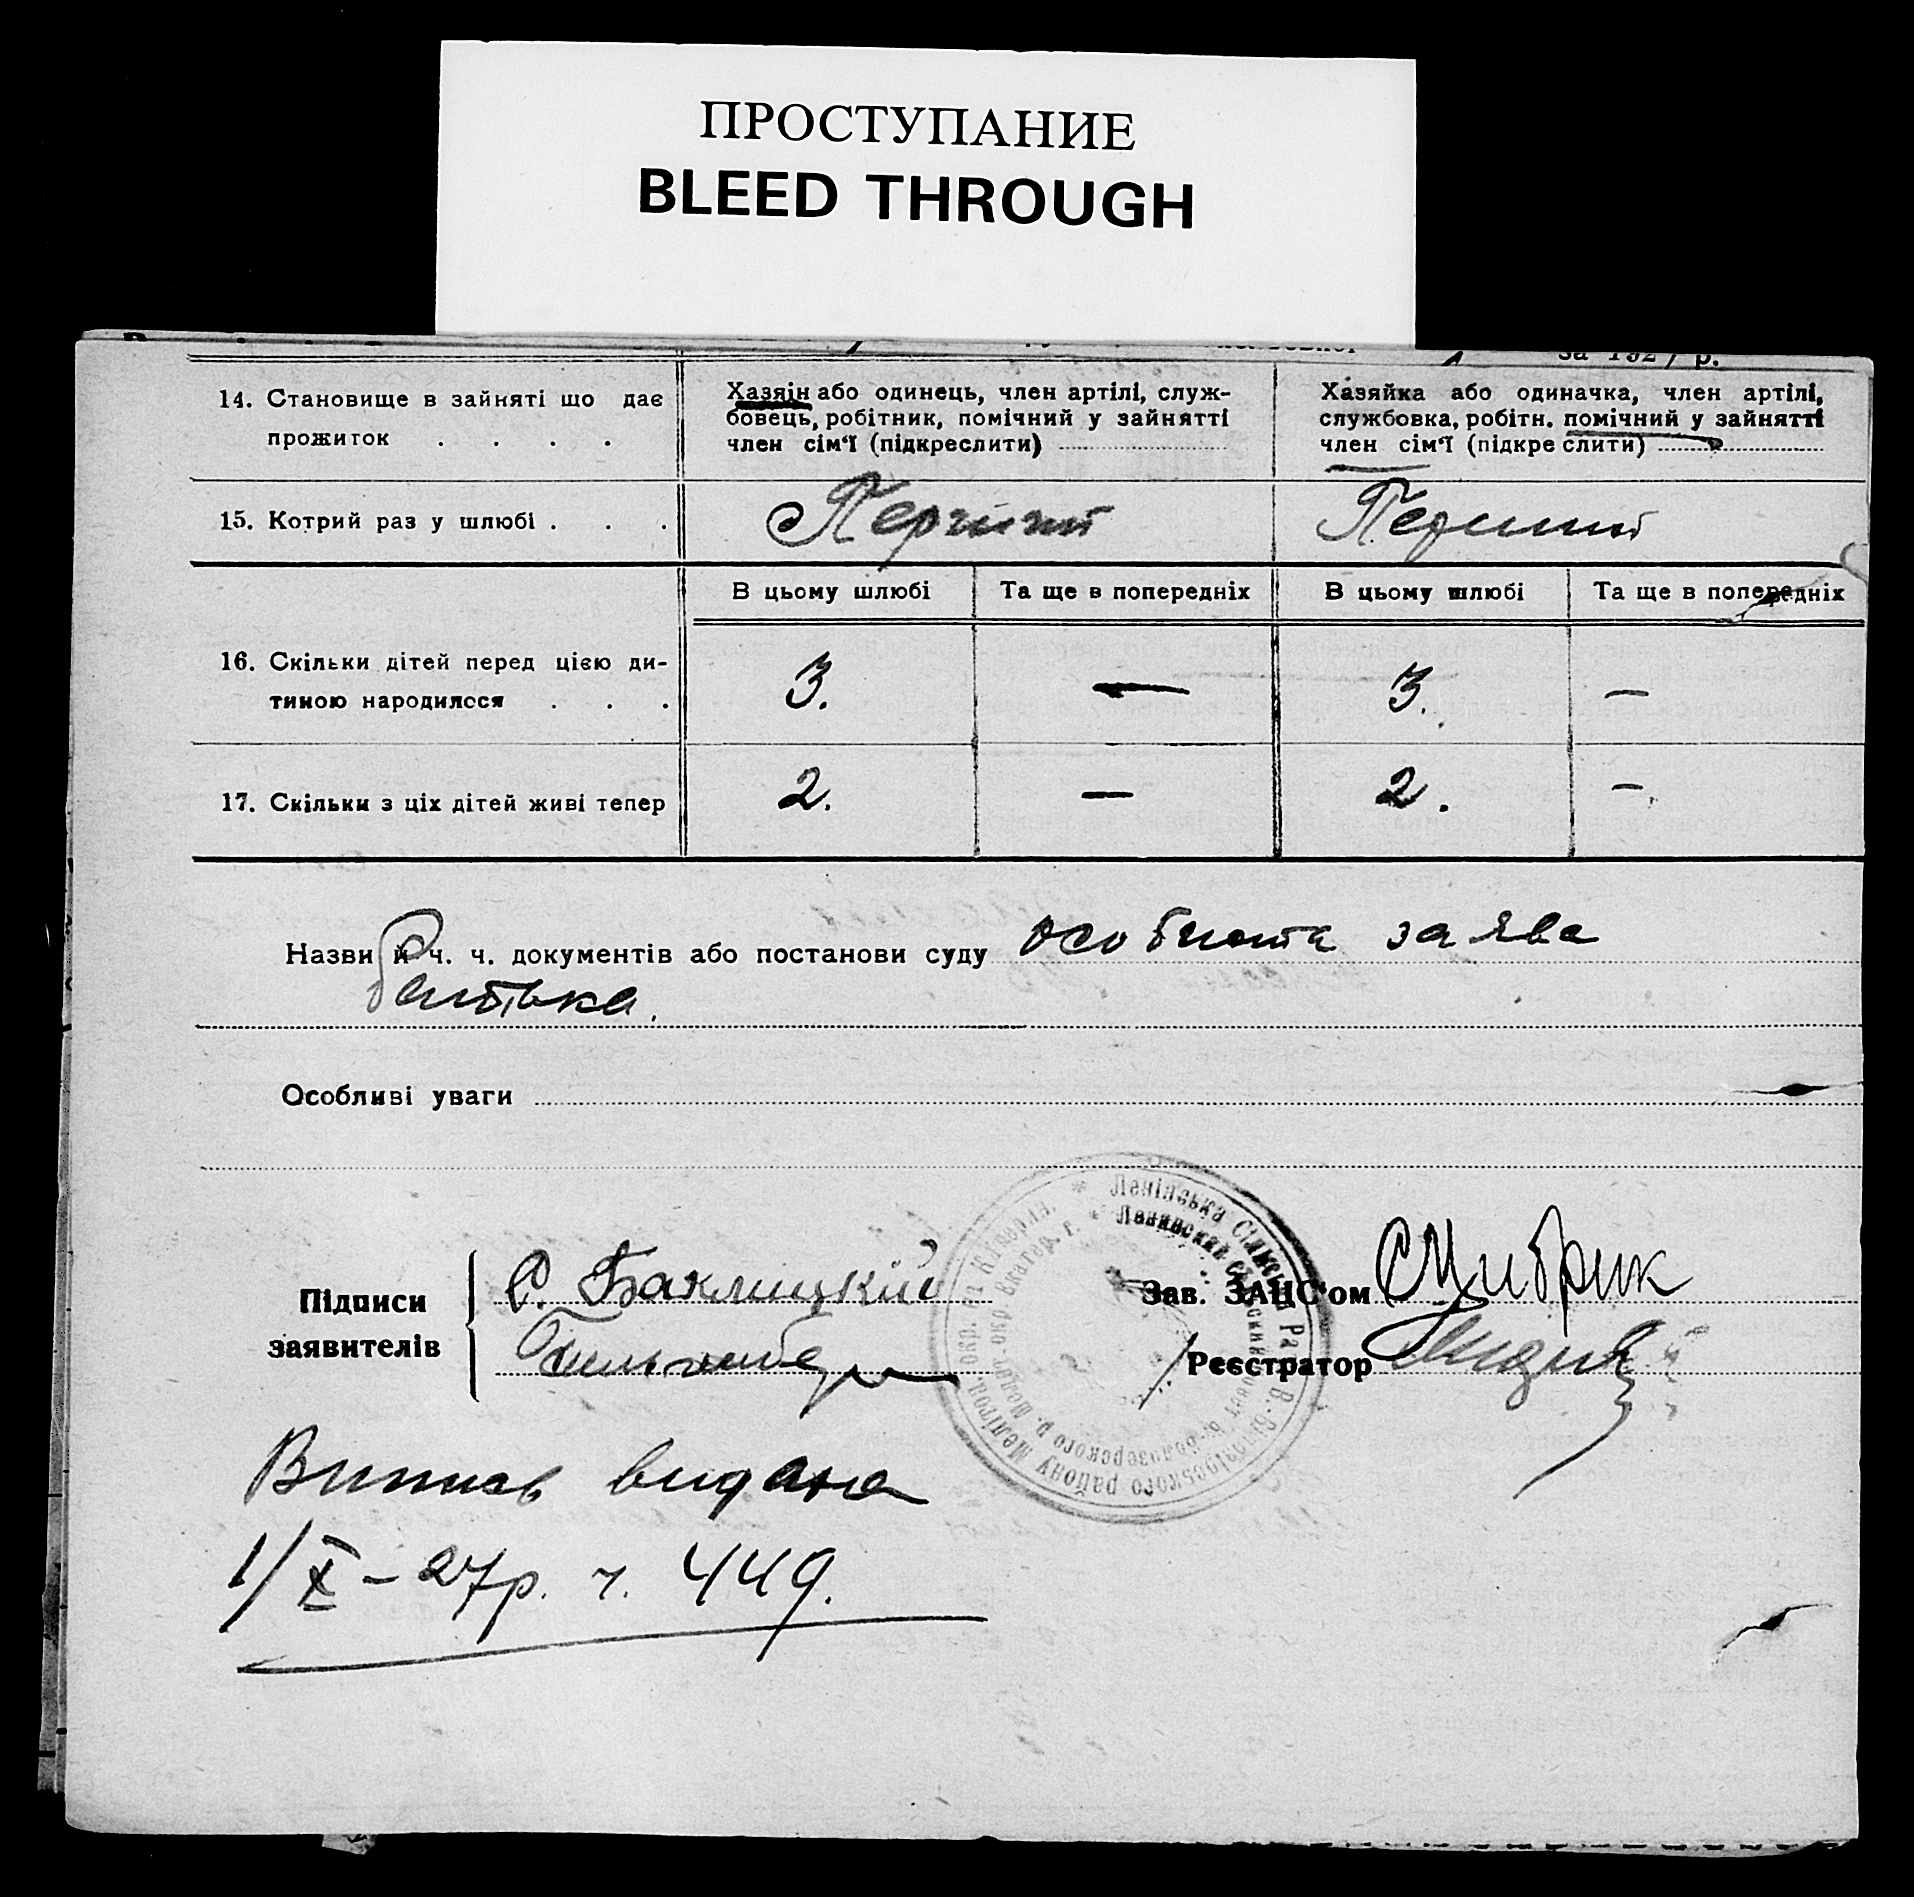 ПРОСТУПАНИЕ
BLEED THROUGH
за 1927 р.
14. Становище в зайняті що дає
прожиток . . . .
Хазяін або одинець, член артілі, служ-
бовець, робітник, помічний у зайнятті
член сім'ї (підкреслити)
Хазяйка або одиначка, член артілі,
службовка, робітн. помічний у зайнятті
член сім'ї (підкреслити)
15. Котрий раз у шлюбі . . .
Перший
Перший
В цьому шлюбі
Та ще в попередніх
В цьому шлюбі
Та ще в попередніх
16. Скільки дітей перед цією ди-
тиною народилося . . .
3.
—
3.
—
17. Скільки з ціх дітей живі тепер
2.
—
2.
—
Назви й ч. ч. документів або постанови суду особиста заява
батька.
Особливі уваги
Підписи
заявителів
С. Баклицкій
Зав. ЗАЦС'ом
Реєстратор
Ленінська Сільська Рада В.-Білозірського району Мелітоп. окр. на Катеринл.
Випись видана
1/X – 27р. ч. 449.